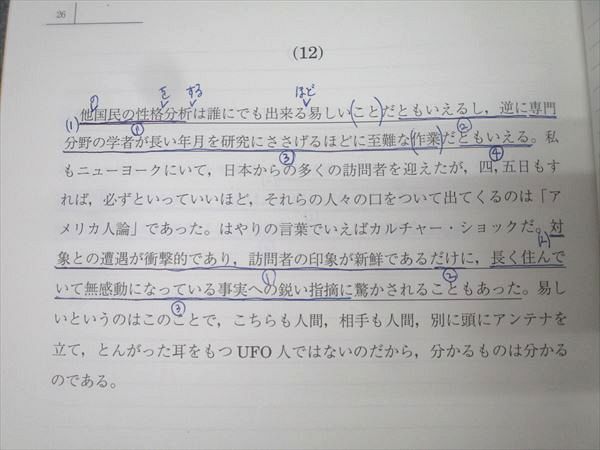 26
(12)
の を する ほど
他国民の性格分析は誰にでも出来る易しい(こと)だともいえるし，逆に専門
(1) ① ②
分野の学者が長い年月を研究にささげるほどに至難な(作業)だともいえる。私
③ ④
もニューヨークにいて，日本からの多くの訪問者を迎えたが，四，五日もす
れば，必ずといっていいほど，それらの人々の口をついて出てくるのは「ア
メリカ人論」であった。はやりの言葉でいえばカルチャー・ショックだ。対
(2)
象との遭遇が衝撃的であり，訪問者の印象が新鮮であるだけに，長く住んで
① ②
いて無感動になっている事実への鋭い指摘に驚かされることもあった。易し
③
いというのはこのことで，こちらも人間，相手も人間，別に頭にアンテナを
立て，とんがった耳をもつ UFO 人ではないのだから，分かるものは分かる
のである。